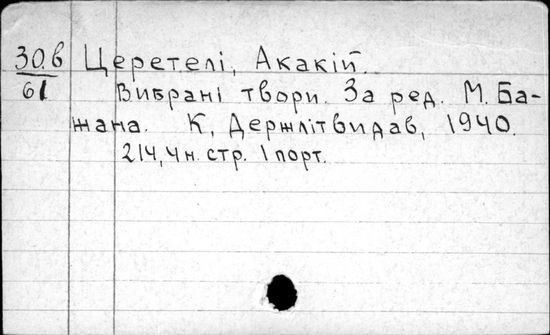 30.в Церетелі, Акакій.
61 Вибрані твори. За ред. М. Ба-
жана. К, Держлітвидав, 1940.
214, 4 н. стр. 1 порт.